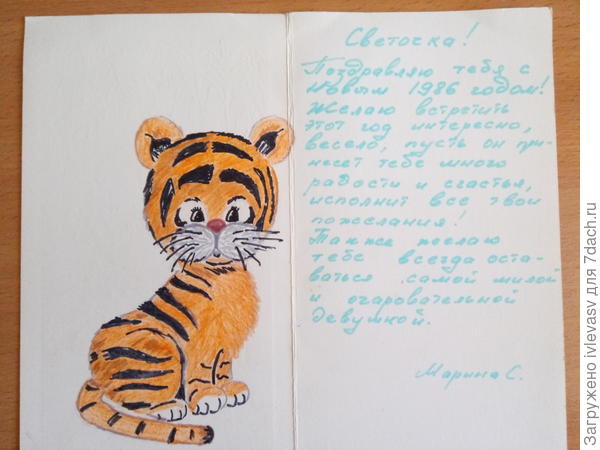 Светочка!
Поздравляю тебя с
Новым 1986 годом!
Желаю встретить
этот год интересно,
весело, пусть он при-
несет тебе много
радости и счастья,
исполнит все твои
пожелания!
Также желаю
тебе всегда оста-
ваться самой милой
и очаровательной
девушкой.
Марина С.
Загружено ivlevasv для 7dach.ru